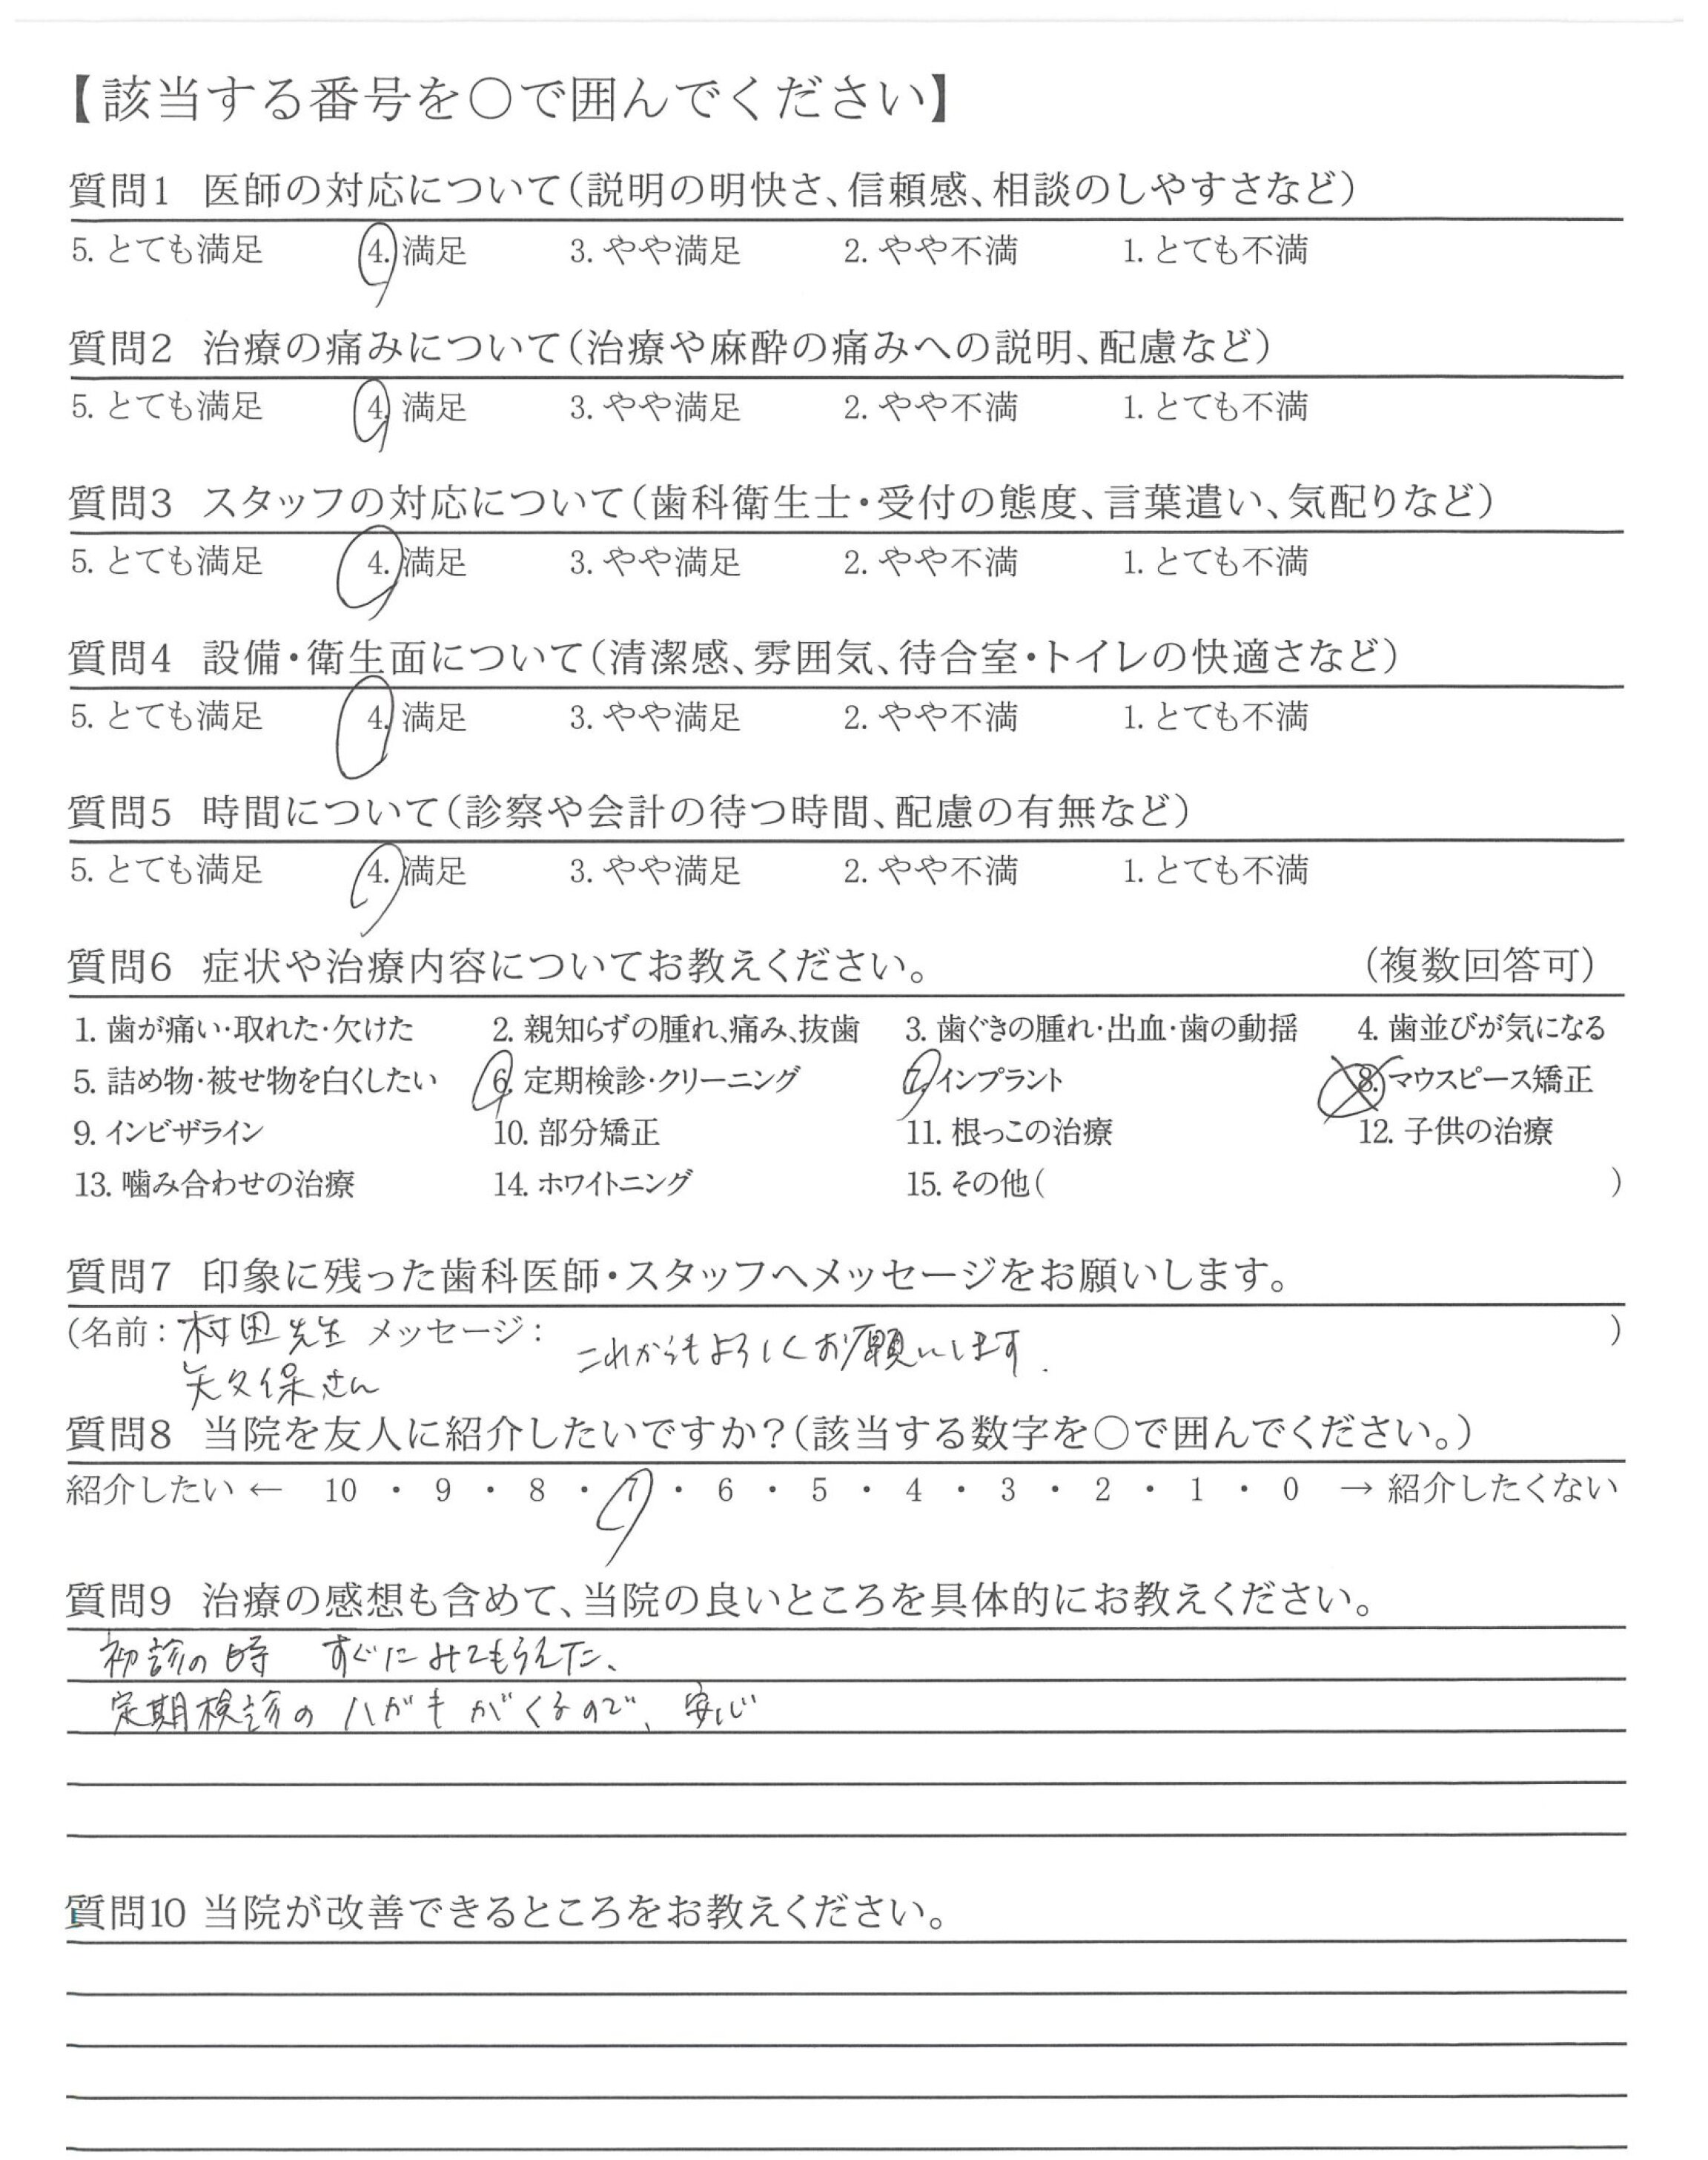 【該当する番号を○で囲んでください】
質問1 医師の対応について(説明の明快さ、信頼感、相談のしやすさなど)
5. とても満足 4. 満足 3. やや満足 2. やや不満 1. とても不満
質問2 治療の痛みについて(治療や麻酔の痛みへの説明、配慮など)
5. とても満足 4. 満足 3. やや満足 2. やや不満 1. とても不満
質問3 スタッフの対応について(歯科衛生士・受付の態度、言葉遣い、気配りなど)
5. とても満足 4. 満足 3. やや満足 2. やや不満 1. とても不満
質問4 設備・衛生面について(清潔感、雰囲気、待合室・トイレの快適さなど)
5. とても満足 4. 満足 3. やや満足 2. やや不満 1. とても不満
質問5 時間について(診察や会計の待つ時間、配慮の有無など)
5. とても満足 4. 満足 3. やや満足 2. やや不満 1. とても不満
質問6 症状や治療内容についてお教えください。 (複数回答可)
1. 歯が痛い・取れた・欠けた 2. 親知らずの腫れ、痛み、抜歯 3. 歯ぐきの腫れ・出血・歯の動揺 4. 歯並びが気になる
5. 詰め物・被せ物を白くしたい 6. 定期検診・クリーニング 7. インプラント 8. マウスピース矯正
9. インビザライン 10. 部分矯正 11. 根っこの治療 12. 子供の治療
13. 噛み合わせの治療 14. ホワイトニング 15. その他( )
質問7 印象に残った歯科医師・スタッフへメッセージをお願いします。
(名前: 村田先生 メッセージ: これからもよろしくお願いします. )
矢久保さん
質問8 当院を友人に紹介したいですか?(該当する数字を○で囲んでください。)
紹介したい ← 10 ・ 9 ・ 8 ・ 7 ・ 6 ・ 5 ・ 4 ・ 3 ・ 2 ・ 1 ・ 0 → 紹介したくない
質問9 治療の感想も含めて、当院の良いところを具体的にお教えください。
初診の時 すぐにみてもらえた、
定期検診のハガキがくるので、安心
質問10 当院が改善できるところをお教えください。